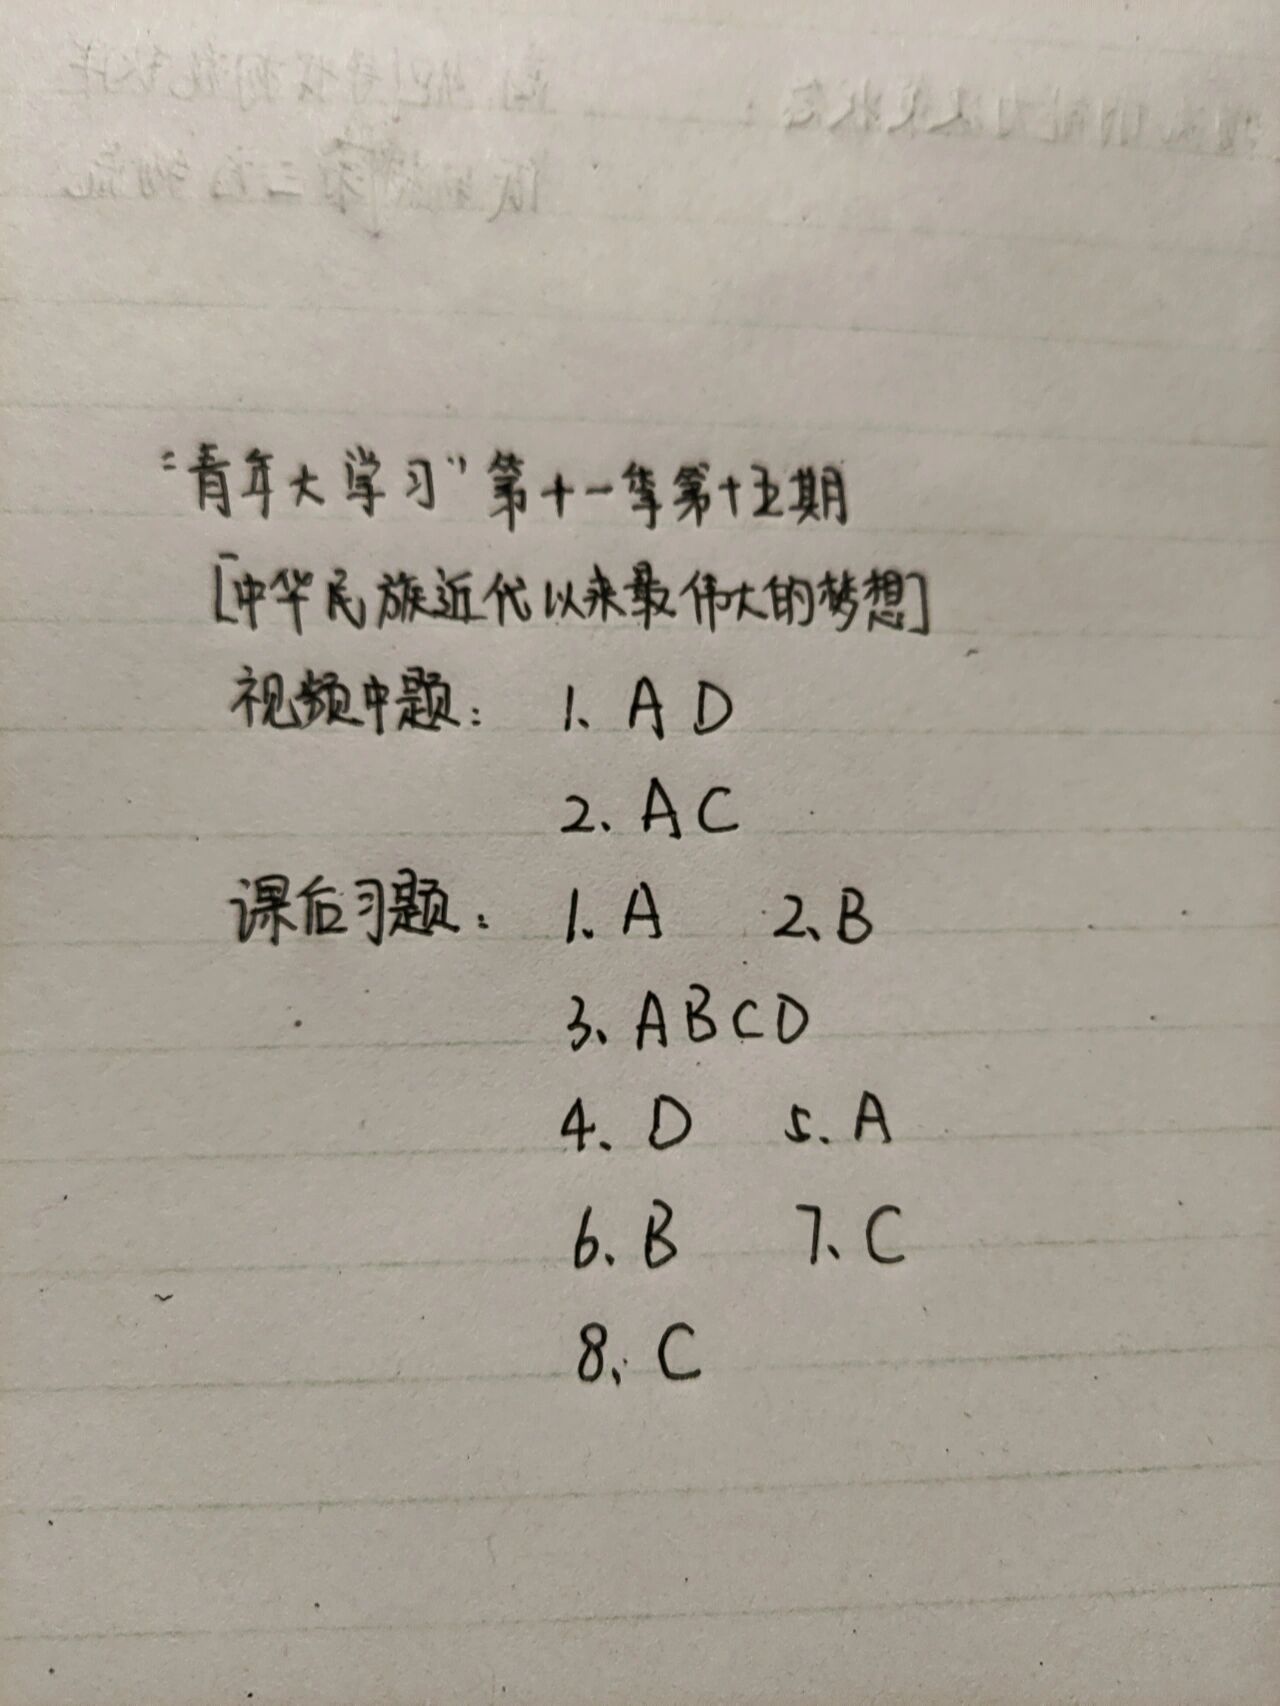 “青年大学习”第十一季第十五期
[中华民族近代以来最伟大的梦想]
视频中题： 1、A D
2、A C
课后习题： 1、A 2、B
3、A B C D
4、D 5、A
6、B 7、C
8、C